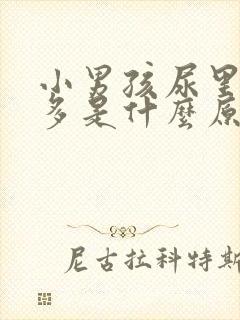 小男孩尿
多是什麼原
尼古拉科特斯